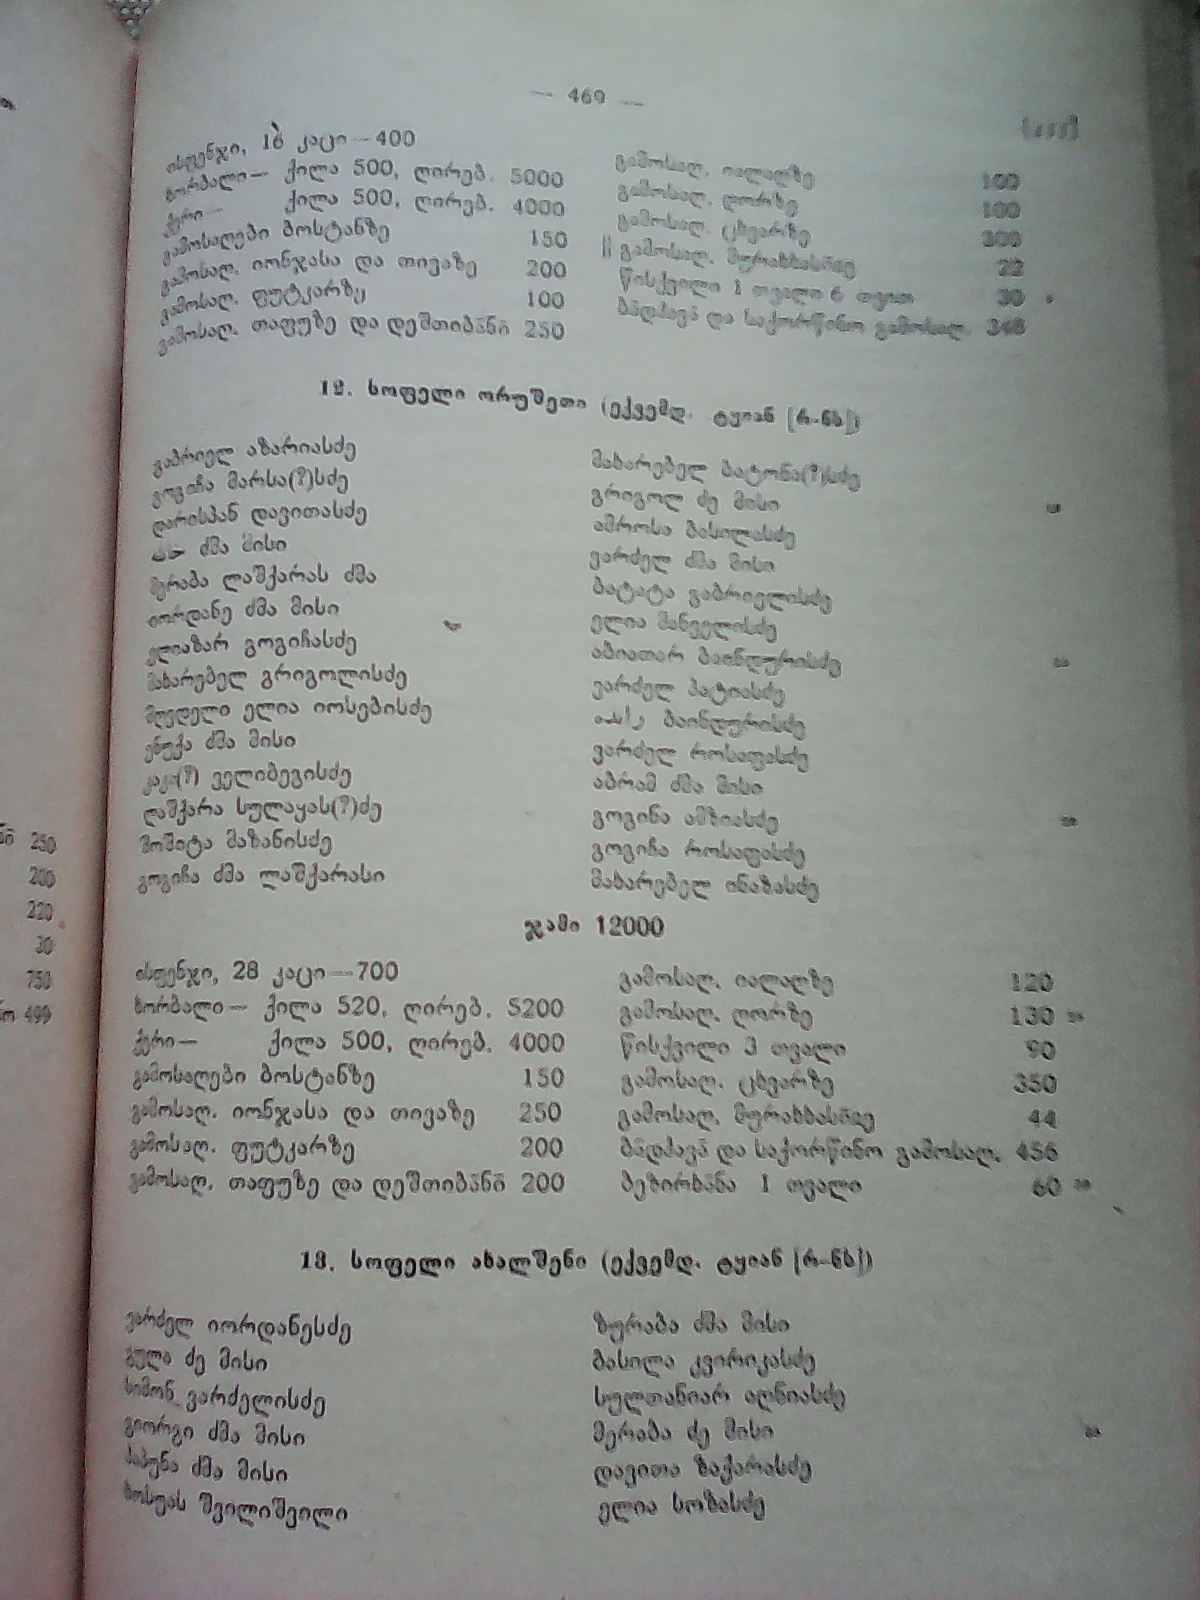 — 469 —
ისფენჯი, 16 კაცი—400
ხორბალი— ქილა 500, ღირებ. 5000
ქერი— ქილა 500, ღირებ. 4000
გამოსაღები ბოსტანზე 150
გამოსაღ. იონჯასა და თივაზე 200
გამოსაღ. ფუტკარზე 100
გამოსაღ. თაფუზე და დეშთიბანი 250
გამოსაღ. იალაღზე 100
გამოსაღ. ღორზე 100
გამოსაღ. ცხვარზე 300
გამოსაღ. 22
წისქვილი 1 თვალი 6 თვით 30
ბადჰავა და საქორწინო გამოსაღ. 348
12. სოფელი ორუშეთი (ექვემდ. ტყიან [რ-ნს])
გაბრიელ აზარიასძე
გოგიჩა მარსა(?)სძე
დარისპან დავითასძე
ძმა მისი
მერაბა ლაშქარას ძმა
იორდანე ძმა მისი
ელიაზარ გოგიჩასძე
მახარებელ გრიგოლისძე
მღვდელი ელია იოსებისძე
ენუქა ძმა მისი
კაკა(?) ველიბეგისძე
ლაშქარა სულაყას(?)ძე
შოშიტა მაზანისძე
გოგიჩა ძმა ლაშქარასი
მახარებელ ბატონა(?)სძე
გრიგოლ ძე მისი
ამროსა ბასილასძე
ვარძელ ძმა მისი
ბატატა გაბრიელისძე
ელია მანველისძე
აბიათარ ბაინდურისძე
ვარძელ პატიასძე
ბაინდურისძე
ვარძელ როსაფასძე
აბრამ ძმა მისი
გოგინა ამზიასძე
გოგიჩა როსაფასძე
მახარებელ ინაზასძე
ჯამი 12000
ისფენჯი, 28 კაცი—700
ხორბალი— ქილა 520, ღირებ. 5200
ქერი— ქილა 500, ღირებ. 4000
გამოსაღები ბოსტანზე 150
გამოსაღ. იონჯასა და თივაზე 250
გამოსაღ. ფუტკარზე 200
გამოსაღ. თაფუზე და დეშთიბანი 200
გამოსაღ. იალაღზე 120
გამოსაღ. ღორზე 130
წისქვილი 3 თვალი 90
გამოსაღ. ცხვარზე 350
გამოსაღ. 44
ბადჰავა და საქორწინო გამოსაღ. 456
ბეზირხანა 1 თვალი 60
13. სოფელი ახალშენი (ექვემდ. ტყიან [რ-ნს])
ვარძელ იორდანესძე
გულა ძე მისი
სიმონ ვარძელისძე
გიორგი ძმა მისი
პაპუნა ძმა მისი
შვილიშვილი
ზურაბა ძმა მისი
ბასილა კვირიკასძე
სულთანიარ აღნიასძე
მერაბა ძე მისი
დავითა ზაქარასძე
ელია სოზასძე
250
200
220
30
750
499